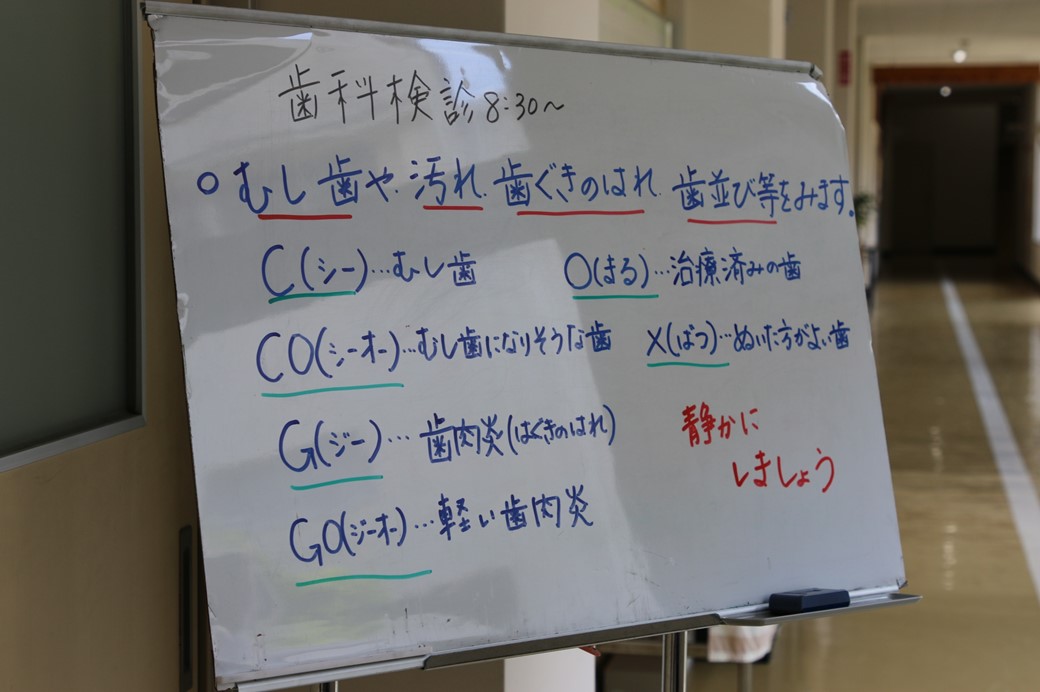 歯科検診 8:30～
○むし歯や、汚れ、歯ぐきのはれ、歯並び等をみます。
C(シー)…むし歯
O(まる)…治療済みの歯
CO(シーオー)…むし歯になりそうな歯
×(ばつ)…ぬいた方がよい歯
G(ジー)…歯肉炎(はぐきのはれ)
GO(ジーオー)…軽い歯肉炎
静かに
しましょう